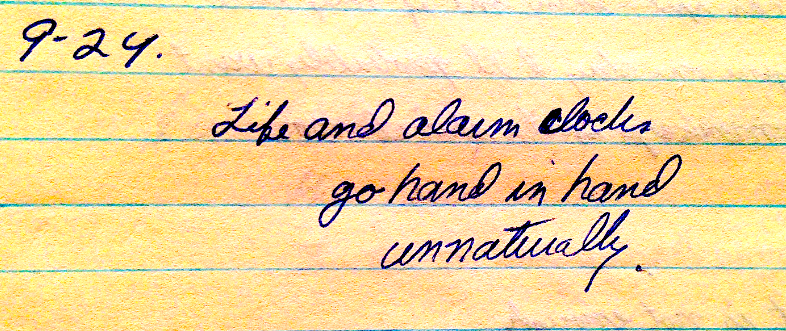 9-24.
Life and alarm clocks
go hand in hand
unnaturally.